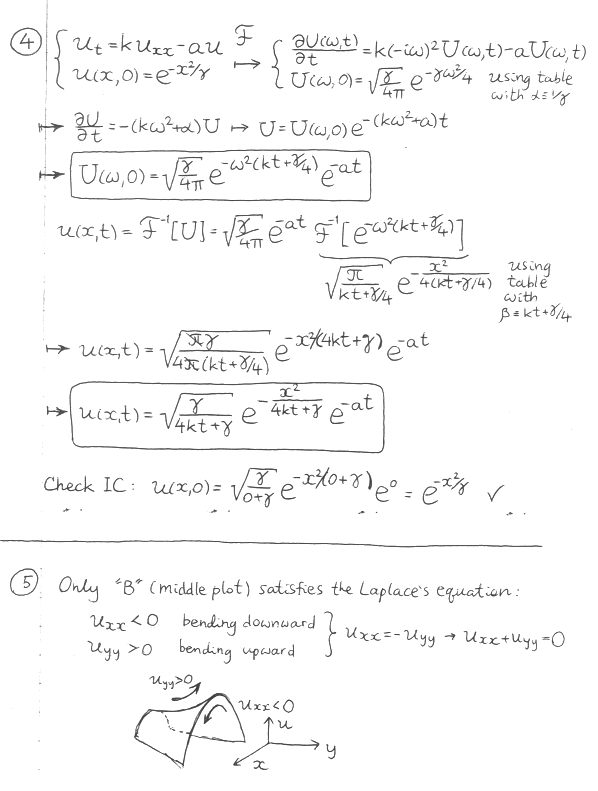 ④ { u_t = k u_xx - au   ℱ ↦   { ∂U(ω,t)/∂t = k(-iω)² U(ω,t) - aU(ω,t)
u(x,0) = e^{-x²/γ}   U(ω,0) = √(γ/4π) e^{-γω²/4}   using table with α≡1/γ
↦ ∂U/∂t = -(kω²+a)U ↦ U = U(ω,0) e^{-(kω²+a)t}
↦ U(ω,0) = √(γ/4π) e^{-ω²(kt+γ/4)} e^{-at}
u(x,t) = ℱ⁻¹[U] = √(γ/4π) e^{-at} ℱ⁻¹[e^{-ω²(kt+γ/4)}]
√(π/(kt+γ/4)) e^{-x²/(4(kt+γ/4))}   using table with β≡kt+γ/4
↦ u(x,t) = √(πγ/(4π(kt+γ/4))) e^{-x²/(4kt+γ)} e^{-at}
↦ u(x,t) = √(γ/(4kt+γ)) e^{-x²/(4kt+γ)} e^{-at}
Check IC: u(x,0) = √(γ/(0+γ)) e^{-x²/(0+γ)} e⁰ = e^{-x²/γ} ✓
⑤ Only "B" (middle plot) satisfies the Laplace's equation:
u_xx < 0   bending downward
u_yy > 0   bending upward
} u_xx = -u_yy → u_xx + u_yy = 0
u_yy>0
u_xx<0
u
y
x